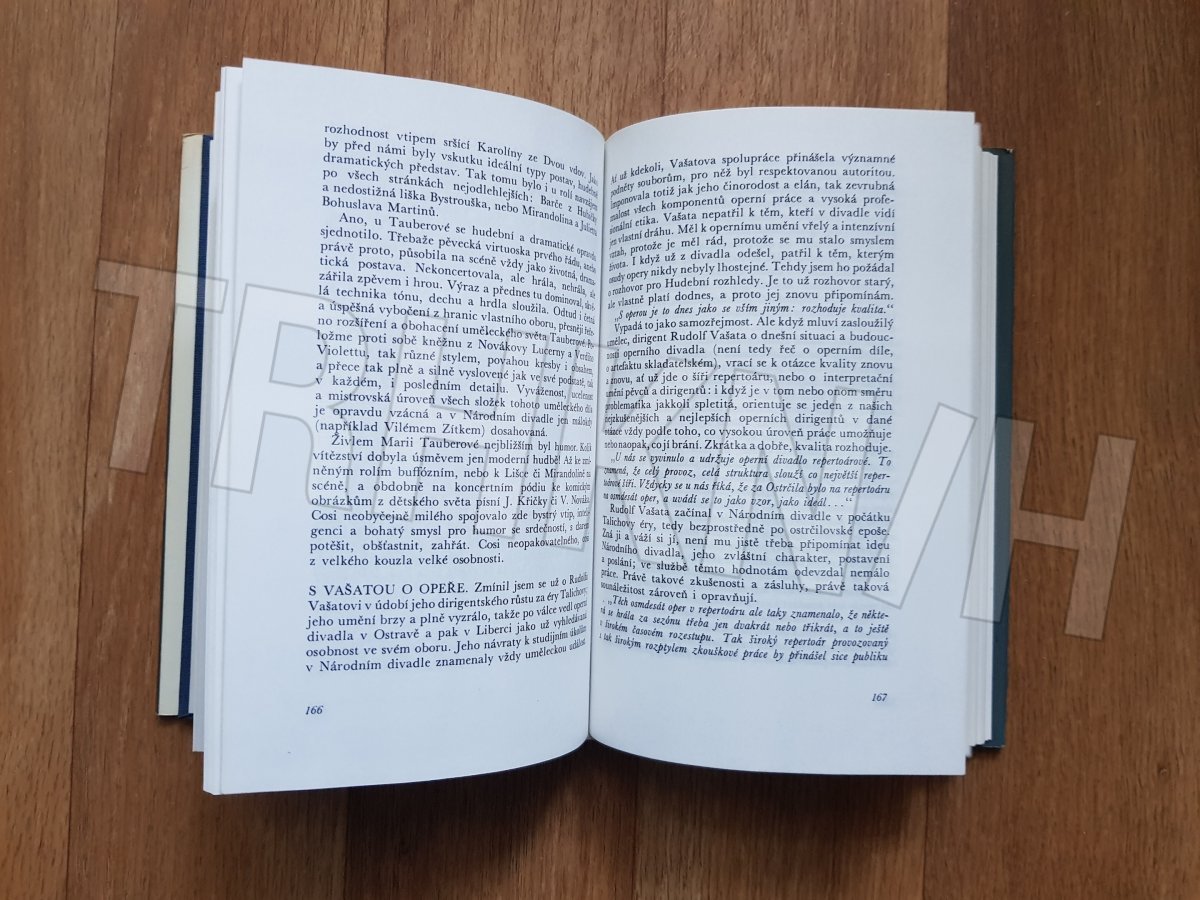 rozhodnost vtipem sršící Karolíny ze Dvou vdov. Jako
by před námi byly vskutku ideální typy postav, hudebně
dramatických představ. Tak tomu bylo i u rolí navzájem
po všech stránkách nejodlehlejších: Barče z Hubičky
a nedostižná liška Bystrouška, nebo Mirandolina a Julietta
Bohuslava Martinů.
Ano, u Tauberové se hudební a dramatické opravdu
sjednotilo. Třebaže pěvecká virtuoska prvého řádu, anebo
právě proto, působila na scéně vždy jako životná, drama-
tická postava. Nekoncertovala, ale hrála, nehrála, ale
zářila zpěvem i hrou. Výraz a přednes tu dominoval, skvě-
lá technika tónu, dechu a hrdla sloužila. Odtud i četná
a úspěšná vybočení z hranic vlastního oboru, přesněji řeče-
no rozšíření a obohacení uměleckého světa Tauberové. Po-
ložme proti sobě kněžnu z Novákovy Lucerny a Verdiho
Violettu, tak různé stylem, povahou kresby i obsahem,
a přece tak plně a silně vyslovené jak ve své podstatě, tak
v každém, i posledním detailu. Vyváženost, ucelenost
a mistrovská úroveň všech složek tohoto uměleckého díla
je opravdu vzácná a v Národním divadle jen málokdy
(například Vilémem Zítkem) dosahovaná.
Živlem Marii Tauberové nejbližším byl humor. Kolik
vítězství dobyla úsměvem jen moderní hudbě! Až ke zmí-
něným rolím buffózním, nebo k Lišce či Mirandolině na
scéně, a obdobně na koncertním pódiu ke komickým
obrázkům z dětského světa písní J. Křičky či V. Nováka.
Cosi neobyčejně milého spojovalo zde bystrý vtip, inteli-
genci a bohatý smysl pro humor se srdečností, s darem
potěšit, obšťastnit, zahřát. Cosi neopakovatelného, cosi
z velkého kouzla velké osobnosti.
S VAŠATOU O OPEŘE. Zmínil jsem se už o Rudolfu
Vašatovi v údobí jeho dirigentského růstu za éry Talichovy;
jeho umění brzy a plně vyzrálo, takže po válce vedl operní
divadla v Ostravě a pak v Liberci jako už vyhledávaná
osobnost ve svém oboru. Jeho návraty k studijním úkolům
v Národním divadle znamenaly vždy uměleckou událost
166
Ať už kdekoli, Vašatova spolupráce přinášela významné
podněty souborům, pro něž byl respektovanou autoritou.
Imponovala totiž jak jeho činorodost a elán, tak zevrubná
znalost všech komponentů operní práce a vysoká profe-
sionální etika. Vašata nepatřil k těm, kteří v divadle vidí
jen vlastní dráhu. Měl k opernímu umění vřelý a intenzivní
vztah, protože je měl rád, protože se mu stalo smyslem
života. I když už z divadla odešel, patřil k těm, kterým
osudy opery nikdy nebyly lhostejné. Tehdy jsem ho požádal
o rozhovor pro Hudební rozhledy. Je to už rozhovor starý,
ale vlastně platí dodnes, a proto jej znovu připomínám.
„S operou je to dnes jako se vším jiným: rozhoduje kvalita.“
Vypadá to jako samozřejmost. Ale když mluví zasloužilý
umělec, dirigent Rudolf Vašata o dnešní situaci a budouc-
nosti operního divadla (není tedy řeč o operním díle,
o artefaktu skladatelském), vrací se k otázce kvality znovu
a znovu, ať už jde o šíři repertoáru, nebo o interpretační
umění pěvců a dirigentů: i když je v tom nebo onom směru
problematika jakkoli spletitá, orientuje se jeden z našich
nejzkušenějších a nejlepších operních dirigentů v dané
otázce vždy podle toho, co vysokou úroveň práce umožňuje
nebo naopak, co jí brání. Zkrátka a dobře, kvalita rozhoduje.
„U nás se vyvinulo a udržuje operní divadlo repertoárové. To
znamená, že celý provoz, celá struktura slouží co největší reper-
toárové šíři. Vždycky se u nás říká, že za Ostrčila bylo na repertoáru
na osmdesát oper, a uvádí se to jako vzor, jako ideál...“
Rudolf Vašata začínal v Národním divadle v počátku
Talichovy éry, tedy bezprostředně po ostrčilovské epoše.
Zná ji a váží si jí, není mu jistě třeba připomínat ideu
Národního divadla, jeho zvláštní charakter, postavení
a poslání; ve službě těmto hodnotám odevzdal nemálo
práce. Právě takové zkušenosti a zásluhy, právě taková
sounáležitost zároveň i opravňují.
„Těch osmdesát oper v repertoáru ale taky znamenalo, že někte-
rá se hrála za sezónu třeba jen dvakrát nebo třikrát, a to ještě
v širokém časovém rozestupu. Tak široký repertoár provozovaný
s tak širokým rozptylem zkouškové práce by přinášel sice publiku
167
TRHKNIH